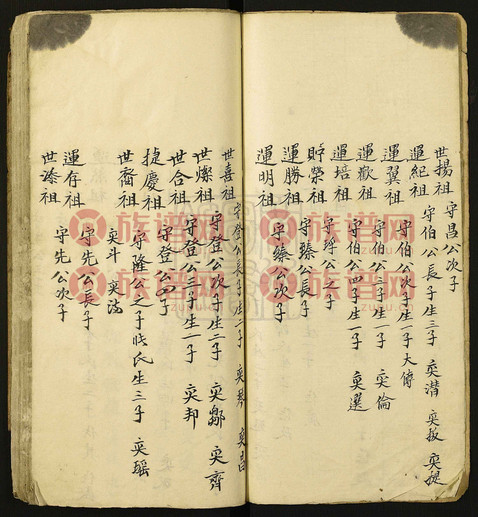 世揚祖 守昌公次子
運紀祖 守伯公長子生三子 奕潜 奕扳 奕提
運翼祖 守伯公次子生一子大傳
運歡祖 守伯公三子生一子 奕倫
運培祖 守伯公四子生一子 奕選
貯榮祖 守捊公之子
運勝祖 守臻公長子
運明祖 守臻公次子
世喜祖 守登公長子生二子 奕琴 奕
世㸁祖 守登公次子生二子 奕鄒 奕齊
世合祖 守登公三子生一子 奕邦
捷慶祖 守登公四子
世裔祖 守隆公之子 氏生三子 奕瑶
奕斗 奕
運存祖 守先公長子
世添祖 守先公次子
族谱网
zupu.cn